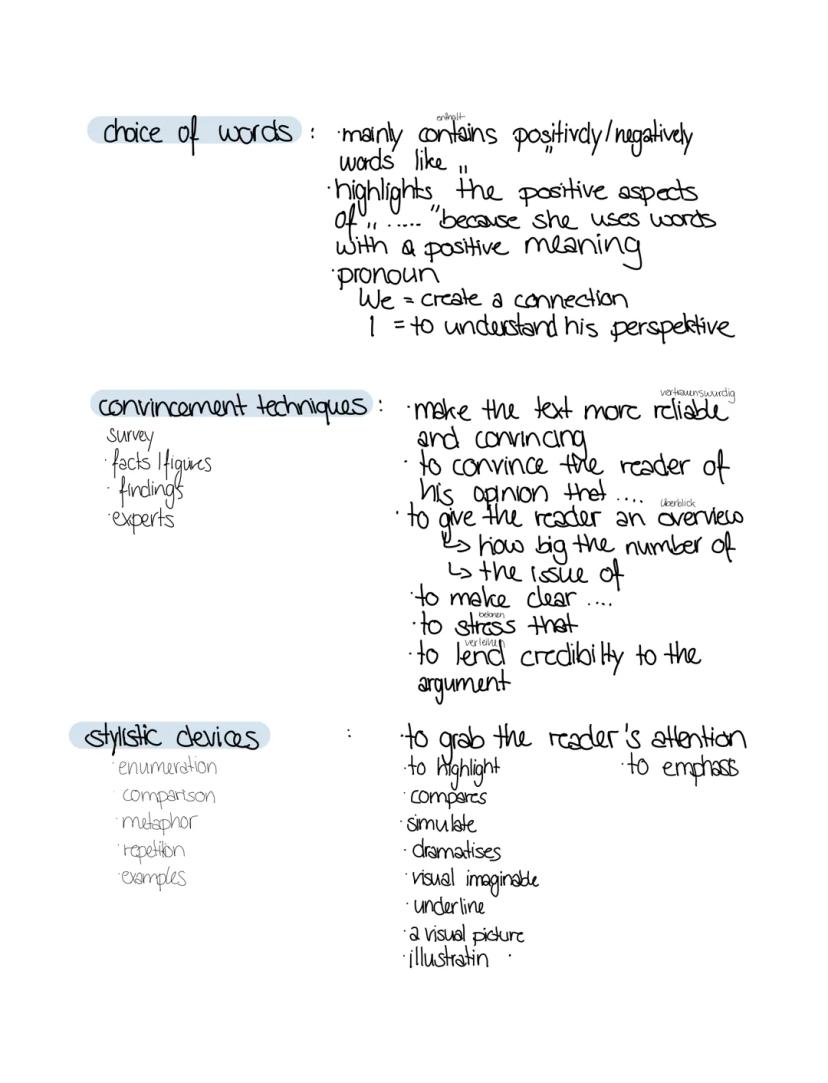 enthält
choice of words : ·mainly contains positively/negatively
words like „ "
·highlights the positive aspects
of „ ..... " because she uses words
with a positive meaning
·pronoun
We = create a connection
I = to understand his perspektive
vertrauenswürdig
convincement techniques : ·make the text more reliable
survey
and convincing
·facts / figures
·to convince the reader of
·findings
his opinion that ....
Überblick
·experts
·to give the reader an overview
↳ how big the number of
↳ the issue of
·to make clear ....
betonen
·to stress that
verleihen
·to lend credibilty to the
argument
stylistic devices : ·to grab the reader's attention
·enumeration
·to highlight ·to emphass
·comparison
·compares
·metaphor
·simulate
·repetition
·dramatises
·examples
·visual imaginable
·underline
·a visual picture
·illustratin ·